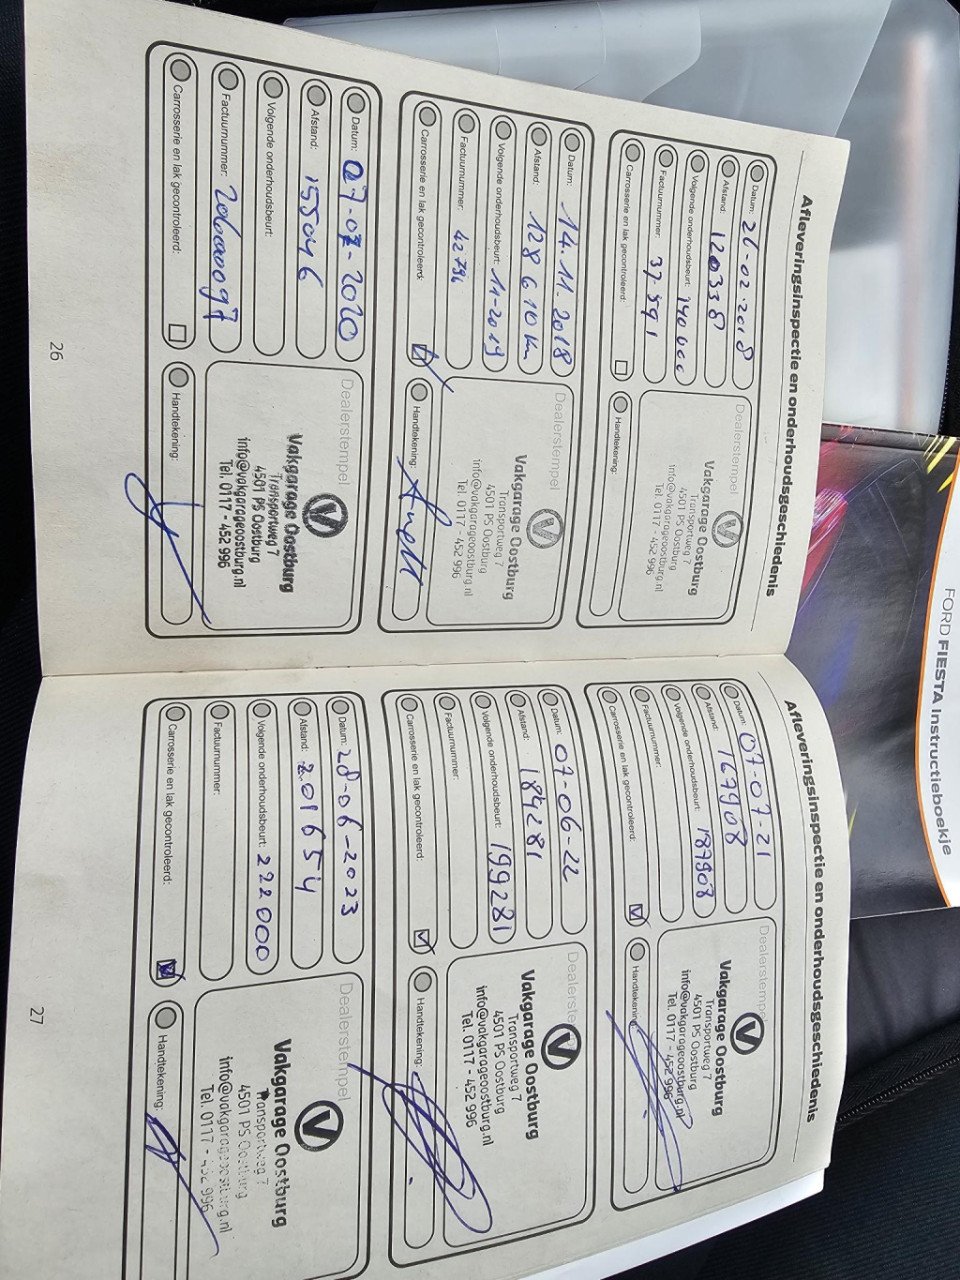 Afleveringsinspectie en onderhoudsgeschiedenis
Datum: 26-02-2018
Afstand: 120338
Volgende onderhoudsbeurt: 140000
Factuurnummer: 37.591
Carrosserie en lak gecontroleerd:
Dealerstempel
Vakgarage Oostburg
Transportweg 7
4501 PS Oostburg
info@vakgarageoostburg.nl
Tel. 0117 - 452 996
Handtekening:
Datum: 14.11.2018
Afstand: 128610 km
Volgende onderhoudsbeurt: 11-2019
Factuurnummer: 42.794
Carrosserie en lak gecontroleerd:
Dealerstempel
Vakgarage Oostburg
Transportweg 7
4501 PS Oostburg
info@vakgarageoostburg.nl
Tel. 0117 - 452 996
Handtekening:
Datum: 07-07-2020
Afstand: 155046
Volgende onderhoudsbeurt:
Factuurnummer:
Carrosserie en lak gecontroleerd:
Dealerstempel
Vakgarage Oostburg
Transportweg 7
4501 PS Oostburg
info@vakgarageoostburg.nl
Tel. 0117 - 452 996
Handtekening:
26
Afleveringsinspectie en onderhoudsgeschiedenis
Datum: 07-07-21
Afstand: 167908
Volgende onderhoudsbeurt: 187908
Factuurnummer:
Carrosserie en lak gecontroleerd:
Dealerstempel
Vakgarage Oostburg
Transportweg 7
4501 PS Oostburg
info@vakgarageoostburg.nl
Tel. 0117 - 452 996
Handtekening
Datum: 07-06-22
Afstand: 184281
Volgende onderhoudsbeurt: 199281
Factuurnummer:
Carrosserie en lak gecontroleerd:
Dealerste
Vakgarage Oostburg
Transportweg 7
4501 PS Oostburg
info@vakgarageoostburg.nl
Tel. 0117 - 452 996
Handtekening:
Datum: 28-06-2023
Afstand: 201654
Volgende onderhoudsbeurt: 222000
Factuurnummer:
Carrosserie en lak gecontroleerd:
Dealerstempel
Vakgarage Oostburg
Transportweg 7
4501 PS Oostburg
info@vakgarageoostburg.nl
Tel. 0117 - 452 996
Handtekening:
27
FORD FIESTA Instructieboekje